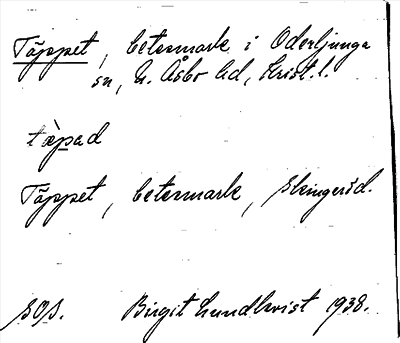 Täppet, betesmark i Oderljunga
sn, N. Åsbo hd, Krist. l.
tæpad
Täppet, betesmark, Skingeröd.
SOS. Birgit Lundkvist 1938.